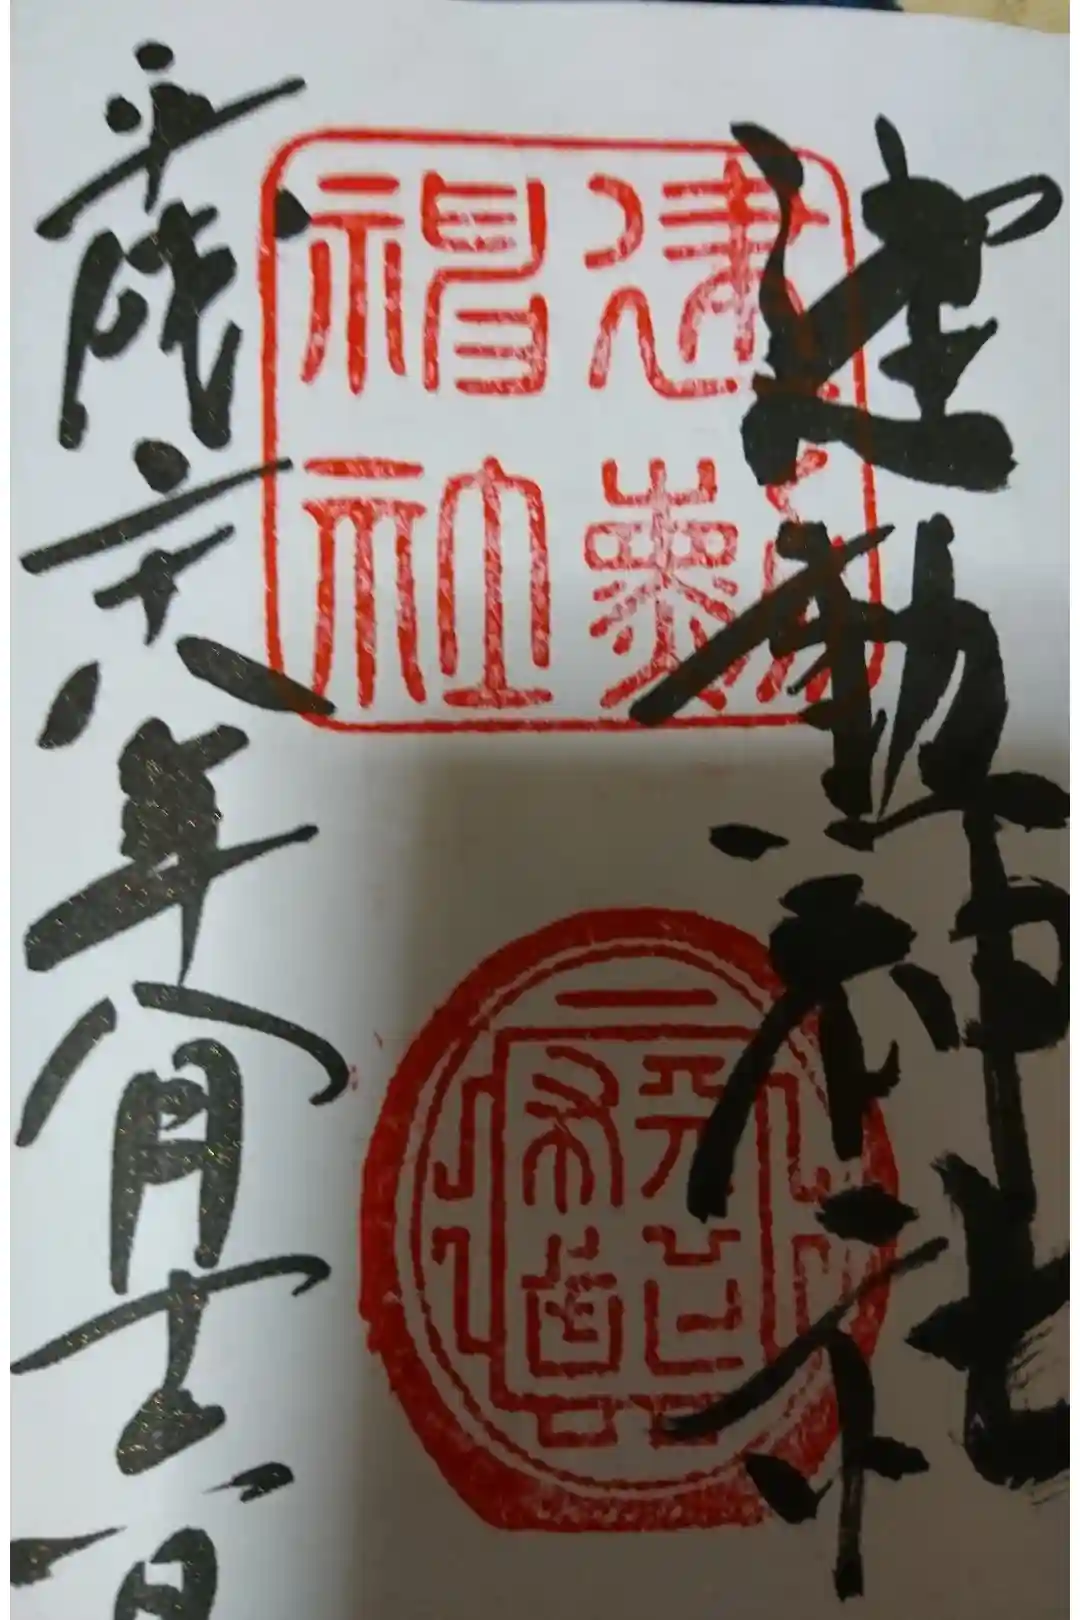 建勲神社
建勲神社
平成二十八年八月十
日